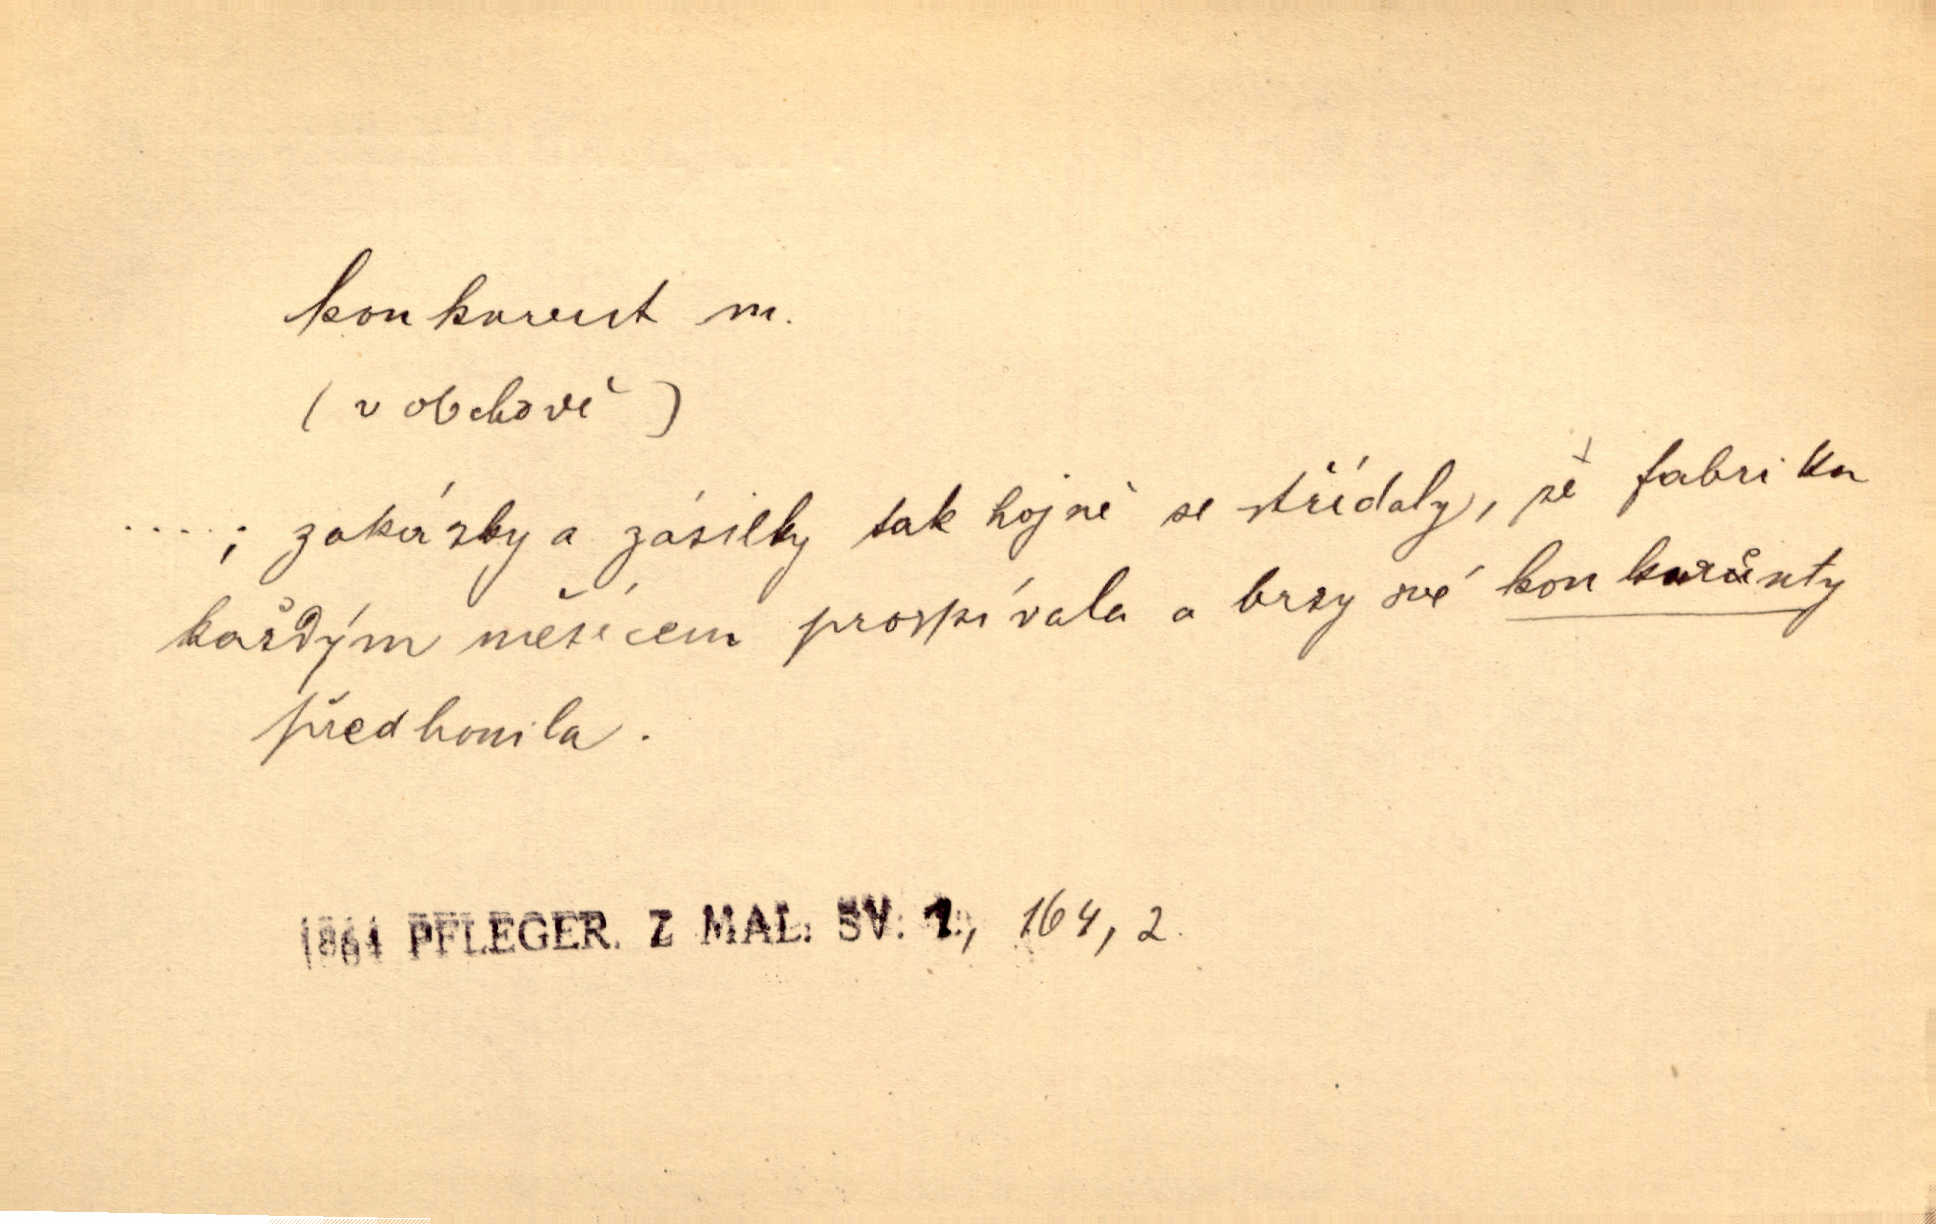 konkurent m.
(v obchodě)
....; zakázky a zásilky tak hojně se střídaly, že fabrika
každým měsícem prospívala a brzy své konkuranty
předhonila.
1864 PFLEGER. Z MAL. SV. 1, 164, 2.